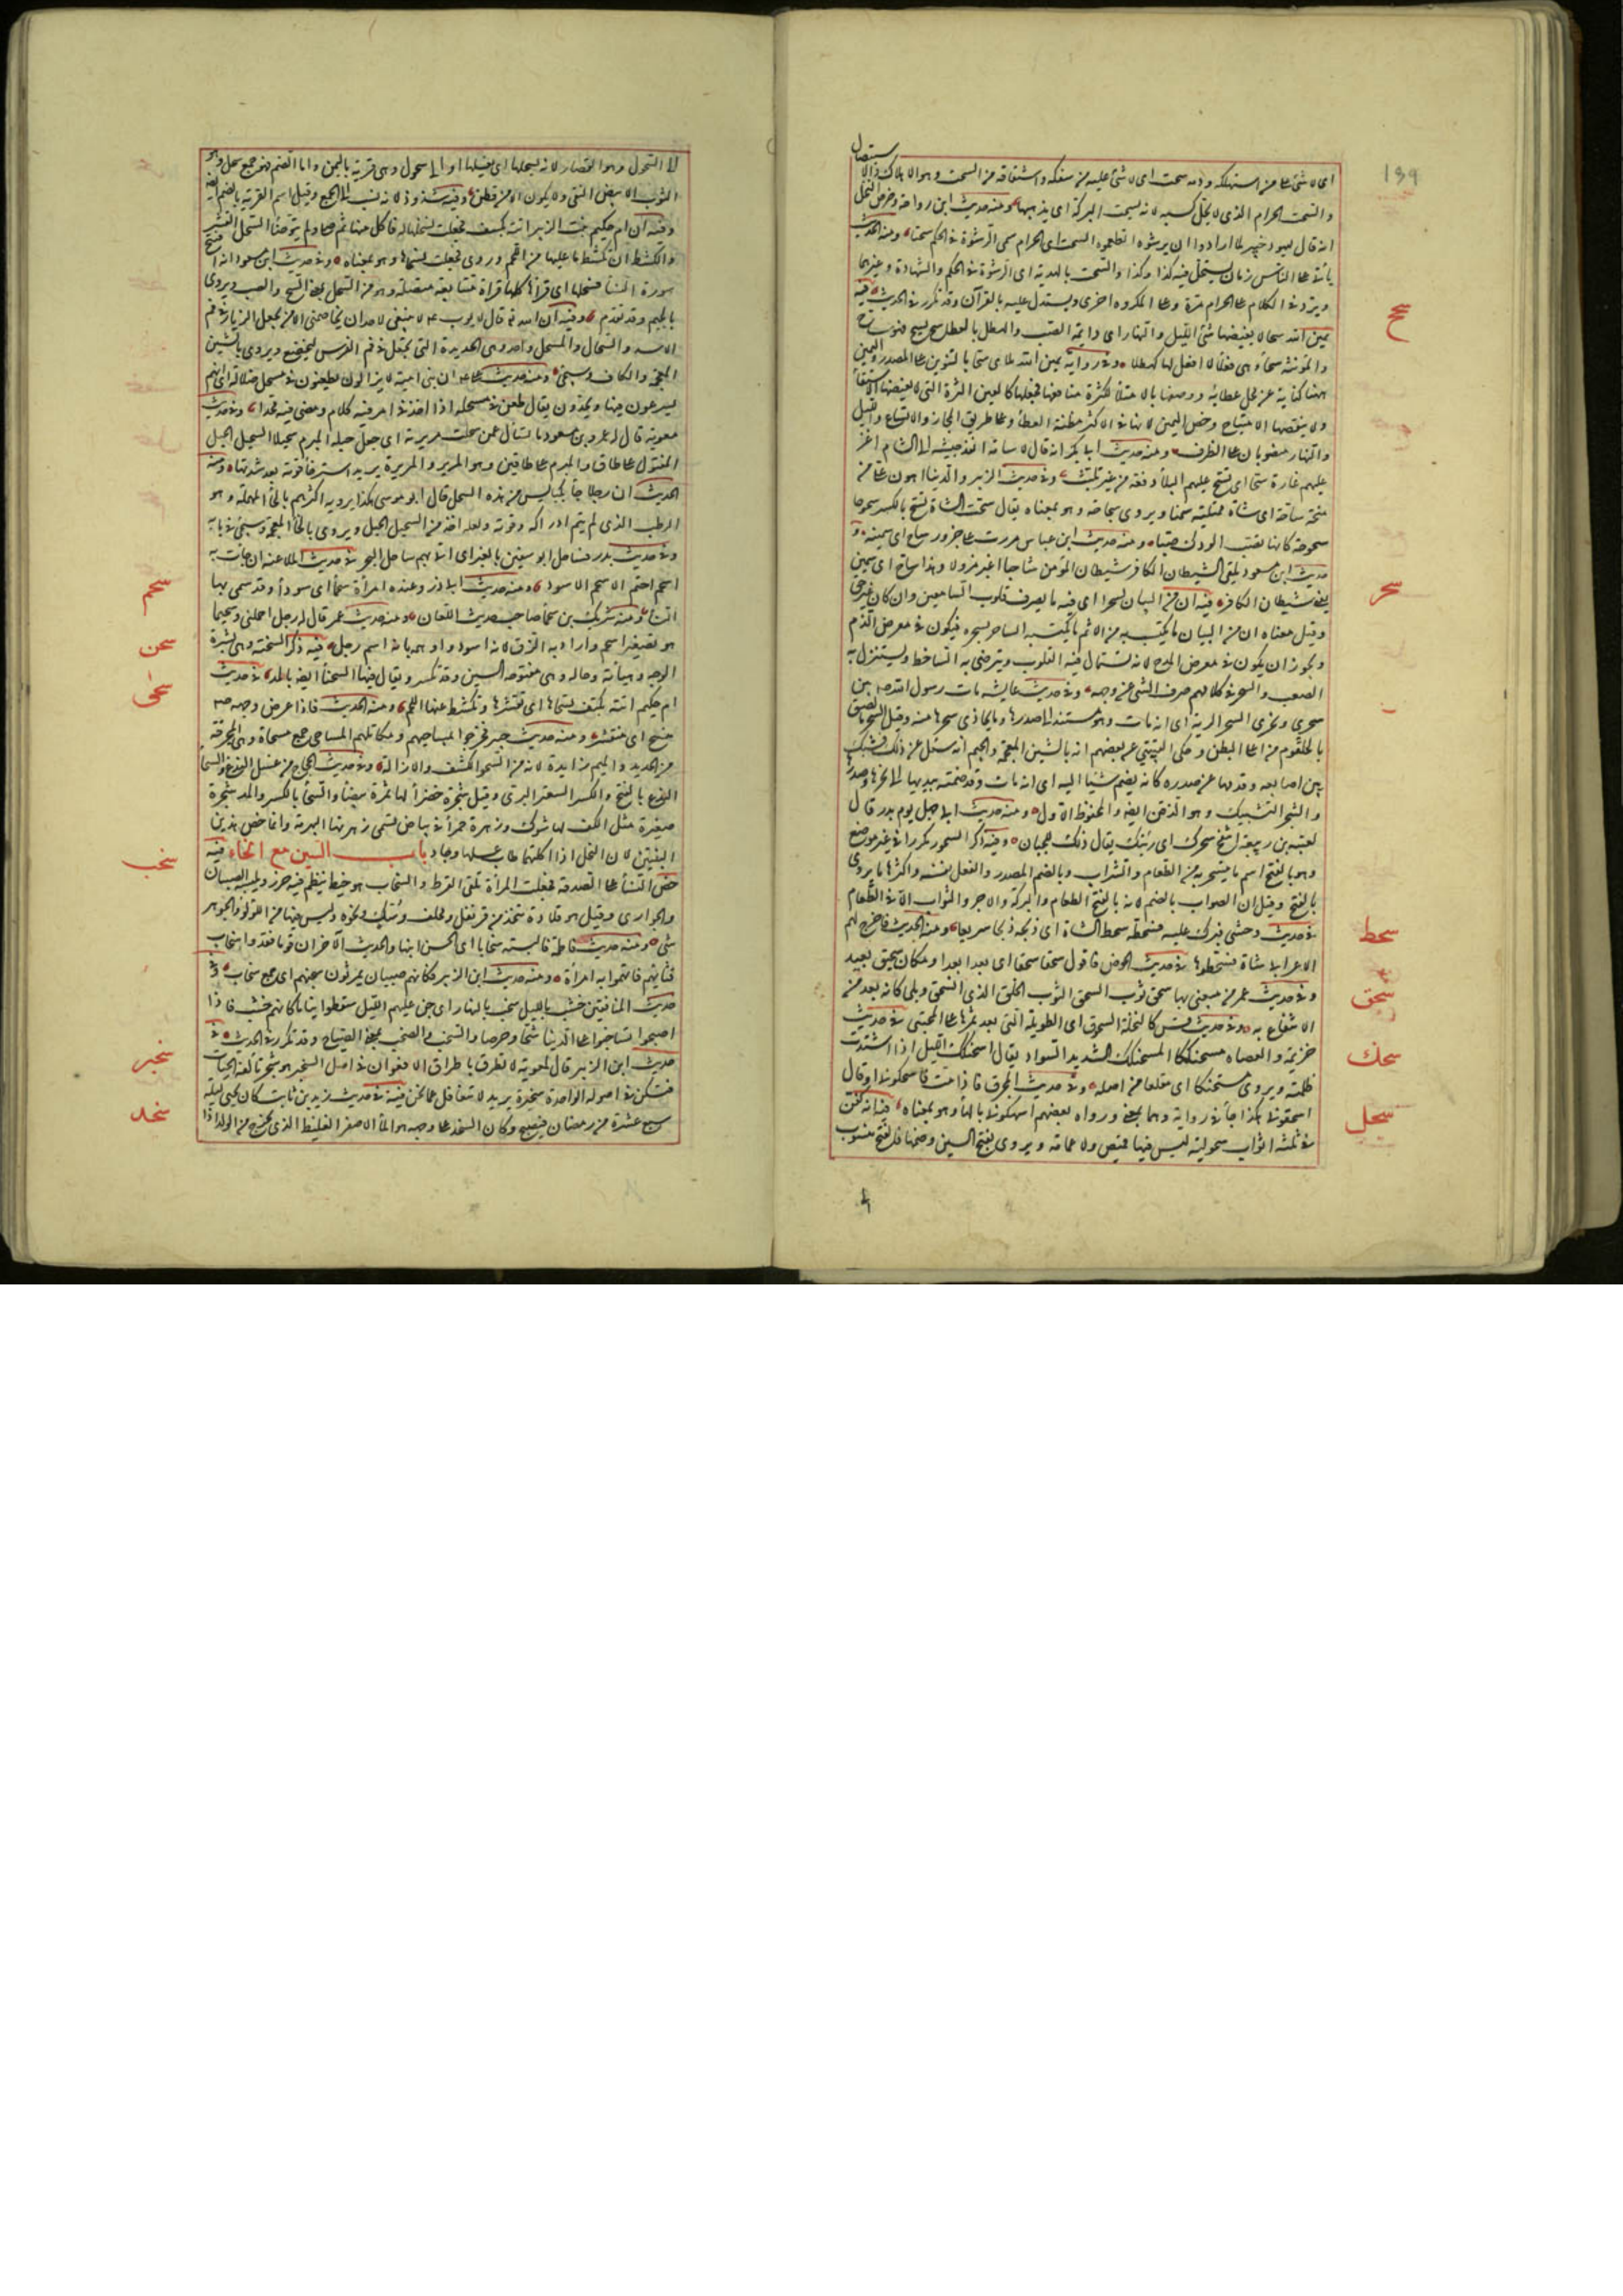 199
اى لا شئ على من استهلكه ودمه سحت اى لا شئ على من سفكه واشتقاقه من السحت وهو الاهلاك والاستيصال
والسحت الحرام الذى لا يحل كسبه لانه يسحت البركة اى يذهبها ومنه حديث ابن رواحة وخرص النخل
انه قال ليهود خيبر لما ارادوا ان يرشوه اتطعمونى السحت اى الحرام سمى الرشوة فى الحكم سحتا ومنه الحديث
يأتى على الناس زمان يستحل فيه كذا وكذا والسحت بالهدية اى الرشوة فى الحكم والشهادة وغيرهما
ويرد فى الكلام على الحرام مرة وعلى المكروه اخرى ويستدل عليه بالقرآن وقد تكرر فى الحديث فيه
سح
يمين الله سحاء لا يغيضها شئ الليل والنهار اى دائمة الصب والهطل بالعطاء يقال سح يسح سحا فهو ساح
والمؤنثة سحاء وهى فعلاء لا افعل لها كهطلاء وفى رواية يمين الله ملأى سحا بالتنوين على المصدر واليمين
ههنا كناية عن محل عطائه ووصفها بالامتلاء لكثرة منافعها فجعلها كالعين الثرة التى لا يغيضها الاستقاء
ولا ينقصها الامتياح وخص اليمين لانها فى الاكثر مظنة العطاء وعلى طريق المجاز والاتساع والليل
والنهار منصوبان على الظرف ومنه حديث ابى بكر انه قال لاسامة انفذ جيشه الى الشام اغر
عليهم غارة سحاء اى تسح عليهم البلاء دفعة من غير تلبث وفى حديث الزبير والدنيا اهون على من
منحة ساحة اى شاة ممتلئة سمنا ويروى سحاحة وهو بمعناه يقال سحت الشاة تسح بالكسر سحوحا
سحوحة كانها تصب الودك صبا ومنه حديث ابن عباس مررت على جزور ساح اى سمينة و
حديث ابن مسعود يلقى الشيطان الكافر شيطان المؤمن شاحبا اغبر مهزولا وهذا ساح اى سمين
سحر
يعنى شيطان الكافر فيه ان من البيان لسحرا اى فيه ما يصرف قلوب السامعين وان كان غير حق
وقيل معناه ان من البيان ما يكتسب به من الاثم ما يكتسبه الساحر بسحره فيكون فى معرض الذم
ويجوز ان يكون فى معرض المدح لانه تستمال فيه القلوب ويترضى به الساخط ويستنزل به
الصعب والسحر فى كلامهم صرف الشئ عن وجهه وفى حديث عايشة مات رسول الله ص بين
سحرى ونحرى السحر الرية اى انه مات وهو مستند الى صدرها وما يحاذى سحرها منه وقيل السحر ما لصق
بالحلقوم من اعلى البطن وحكى القتيبى عن بعضهم انه بالشين المعجمة والجيم انه سئل عن ذلك فشبك
بين اصابعه وقدمها عن صدره كانه يضم شيئا اليه اى انه مات وقد ضمته بيديها الى نحرها وصدرها
والشجر التشبيك وهو الذقن ايضا والمحفوظ الاول ومنه حديث ابى جهل يوم بدر قال
لعتبة بن ربيعة انتفخ سحرك اى رئتك يقال ذلك للجبان وفيه ذكر السحور مكررا فى غير موضع
وهو بالفتح اسم ما يتسحر به من الطعام والشراب وبالضم المصدر والفعل نفسه واكثر ما يروى
بالفتح وقيل ان الصواب بالضم لانه بالفتح الطعام والبركة والاجر والثواب فى الفعل لا فى الطعام
سحط
فى حديث وحشى فبرك عليه فسحطه سحط الشاة اى ذبحه ذبحا سريعا ومنه الحديث فاخرج لهم
الاعرابى شاة فسحطوها فى حديث الحوض فاقول سحقا سحقا اى بعدا بعدا ومكان سحيق بعيد
سحق
وفى حديث عمر من يبيعنى بها سحق ثوب السحق الثوب الخلق الذى انسحق وبلى كانه بعد من
الانتفاع به وفى حديث قس كالنخلة السحوق اى الطويلة التى بعد ثمرها على المجتنى فى حديث
سحك
خزيمة والعضاه مسحنككا المسحنكك الشديد السواد يقال اسحنكك الليل اذا اشتدت
ظلمته ويروى مستحنكا اى منقلعا من اصله وفى حديث المحرق فاذا مت فاسحكونى او قال
سحل
اسحقونى هكذا جاء فى رواية وهما بمعنى ورواه بعضهم اسهكونى بالهاء وهو بمعناه فيه انه كفن
فى ثلثة اثواب سحولية ليس فيها قميص ولا عمامة ويروى بفتح السين وضمها فالفتح منسوب
الى السحول وهو القصار لانه يسحلها اى يغسلها او الى سحول وهى قرية باليمن واما الضم فهو جمع سحل وهو
الثوب الابيض النقى ولا يكون الا من قطن وفيه شذوذ لانه نسب الى الجمع وقيل اسم القرية بالضم ايضا
وفيه ان ام حكيم بنت الزبير اتته بكتف فجعلت تسحلها له فاكل منها ثم صلى ولم يتوضأ السحل القشر
والكشط اى تكشط ما عليها من اللحم وروى فجعلت تسحاها وهو بمعناه وفى حديث ابن مسعود انه افتتح
سورة النساء فسحلها اى قرأها كلها قراءة متتابعة متصلة وهو من السحل بمعنى السح والصب ويروى
بالجيم وقد تقدم وفيه ان الله تعالى قال لايوب ع م لا ينبغى لاحد ان يخاصمنى الا من يجعل الزيار فى فم
الاسد والسحال والمسحل واحد وهى الحديدة التى تجعل فى فم الفرس ليخضع ويروى بالشين
المعجمة والكاف وسيجئ ومنه حديث على ان بنى امية لا يزالون يطعنون فى مسحل ضلالة اى انهم
يسرعون فيها ويجدون يقال طعن فى مسحله اذا اخذ فى امر فيه كلام ومضى فيه مجدا وفى حديث
معوية قال له عمرو بن مسعود ما تسأل عمن سحلت مريرته اى جعل حبله المبرم سحيلا السحيل الحبل
المفتول على طاق والمبرم على طاقين وهو المرير والمريرة يريد استرخاء قوته بعد شدتها ومنه
الحديث ان رجلا جاء بكبائس من هذه السحل قال ابو موسى هكذا يرويه اكثرهم بالحاء المهملة وهو
الرطب الذى لم يتم ادراكه وقوته ولعله اخذ من السحيل الحبل ويروى بالخاء المعجمة وسيجئ فى بابه
وفى حديث بدر فساحل ابو سفين بالعير اى اتى بهم ساحل البحر فى حديث الملاعنة ان جاءت به
سحم
اسحم احتم الاسحم الاسود ومنه حديث ابى ذر وعنده امرأة سحماء اى سوداء وقد سمى بها
النساء ومنه شريك بن سحماء صاحب حديث اللعان ومنه حديث عمر قال له رجل احملنى وسحيما
سحن
هو تصغير اسحم واراد به الزق لانه اسود واوهمه بانه اسم رجل فيه ذكر السحنة وهى بشرة
الوجه وهيأته وحاله وهى مفتوحة السين وقد تكسر ويقال فيها السحناء ايضا بالمد فى حديث
سحى
ام حكيم اتته بكتف تسحاها اى تقشرها وتكشط عنها اللحم ومنه الحديث فاذا عرض وجهه ص
منسح اى منقشر ومنه حديث خيبر فخرجوا بمساحيهم ومكاتلهم المساحى جمع مسحاة وهى المجرفة
من الحديد والميم زايدة لانه من السحو الكشف والازالة وفى حديث الحجاج من عسل الندغ والسحاء
الندغ بالفتح والكسر السعتر البرى وقيل شجرة خضراء لها ثمرة بيضاء والسحاء بالكسر والمد شجرة
صغيرة مثل الكف لها شوك وزهرة حمراء فى بياض تسمى زهرتها البهرمة وانما خص هذين
سخب
النبتين لان النحل اذا اكلتهما طاب عسلها وجاد باب السين مع الخاء فيه
حض النساء على الصدقة فجعلت المرأة تلقى القرط والسخاب هو خيط ينظم فيه خرز ويلبسه الصبيان
والجوارى وقيل هو قلادة تتخذ من قرنفل ومحلب وسك ونحوه وليس فيها من اللؤلؤ والجوهر
شئ ومنه حديث فاطمة فالبسته سخابا اى الحسن ابنها والحديث الآخر ان قوما فقدوا سخاب
فتاتهم فاتهموا به امرأة ومنه حديث ابن الزبير فكانهم صبيان يمرثون سخبهم اى جمع سخاب وفى
حديث المنافقين خشب بالليل سخب بالنهار اى جن عليهم الليل سقطوا نياما كانهم خشب فاذا
اصبحوا تساخبوا على الدنيا شحا وحرصا والسخب والصخب بمعنى الصياح وقد تكرر فى الحديث فى
سخبر
حديث ابن الزبير قال لمعوية لا تطرق اطراق الافعوان فى اصل السخبر هو شجر تألفه الحيات
فتسكن فى اصوله الواحدة سخبرة يريد لا تتغافل عما نحن فيه فى حديث زيد بن ثابت كان يحيى ليلة
سخد
سبع عشرة من رمضان فيصبح وكان السخد على وجهه هو الماء الاصفر الغليظ الذى يخرج مع الولد اذا